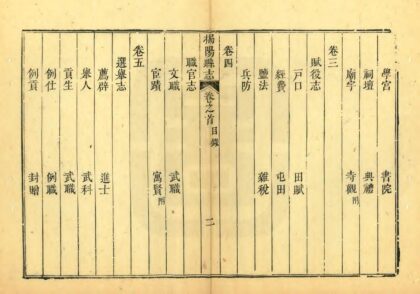 學宮 書院
祠壇 典禮
廟宇 寺觀附
卷三
賦役志
戶口 田賦
經費 屯田
鹽法 雜稅
兵防
卷四
揭陽縣志 卷之首 目錄 二
職官志
文職 武職
宦蹟 寓賢附
卷五
選舉志
薦辟 進士
舉人 武科
貢生 武職
例仕 例職
例貢 封贈